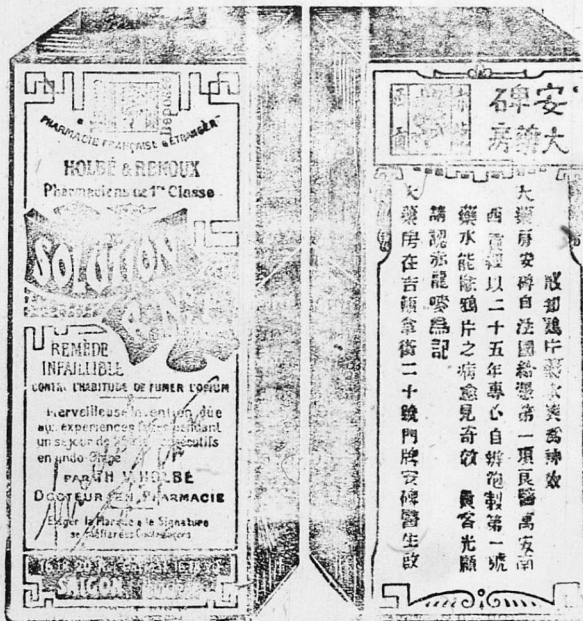 PHARMACIE FRANÇAISE & ÉTRANGÈRE
HOLBÉ & RENOUX
Pharmaciens de 1re Classe
SOLUTION
REMÈDE
INFAILLIBLE
CONTRE L'HABITUDE DE FUMER L'OPIUM
Merveilleuse invention due
aux expériences faites pendant
un séjour de
en Indo-Chine
PAR TH. V. HOLBÉ
DOCTEUR EN PHARMACIE
Exiger la Marque et la Signature
se méfier des Contrefaçons
SAIGON
安大
碑藥
房
戒却鴉片藥水
大藥房安碑自法國
第一項良醫萬安南
西貢經以二十五年專心自辦砲製第一號
藥水能除鴉片之病愈見奇效 貴客光顧
請認亦龍嘜為記
大藥房在吉顛拿街二十號門牌安碑醫生啟